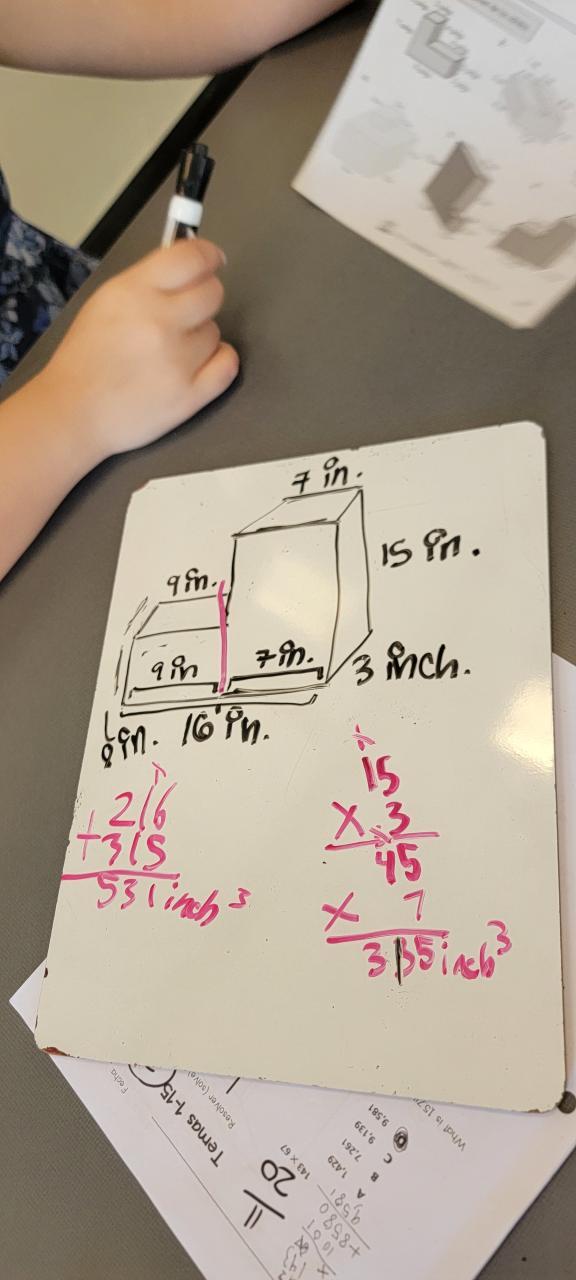 7 in.
15 in.
9 in.
9 in
7 in.
3 inch.
8 in.
16 in.
1
216
+315
531 inch³
1
15
x 3
45
x 7
315 inch³
Fecha
Temas 1-15
20
143 x 67
A 1,429
B 7,261
C 9,139
9,581
+8580
9,581